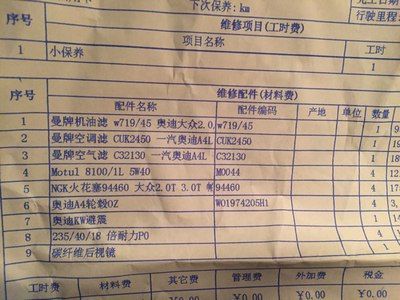 下次保养: km
行驶里程:
序号 维修项目(工时费)
项目名称 工时
1 小保养 1
序号 维修配件(材料费)
配件名称 配件编码 产地 单位 数量
1 曼牌机油滤 w719/45 奥迪大众2.0, w719/45 1
2 曼牌空调滤 CUK2450 一汽奥迪A4L CUK2450 1
3 曼牌空气滤 C32130 一汽奥迪A4L C32130 1
4 Motul 8100/1L 5W40 M0044 4
5 NGK火花塞94460 大众2.0T 3.0T 94460 4
6 奥迪A4轮毂OZ WO1974205H1 4
7 奥迪KW避震 1
8 235/40/18 倍耐力P0 4
9 碳纤维后视镜
工时费 材料费 其它费 管理费 外加费 税金
¥0.00 ¥0.00 ¥0.00